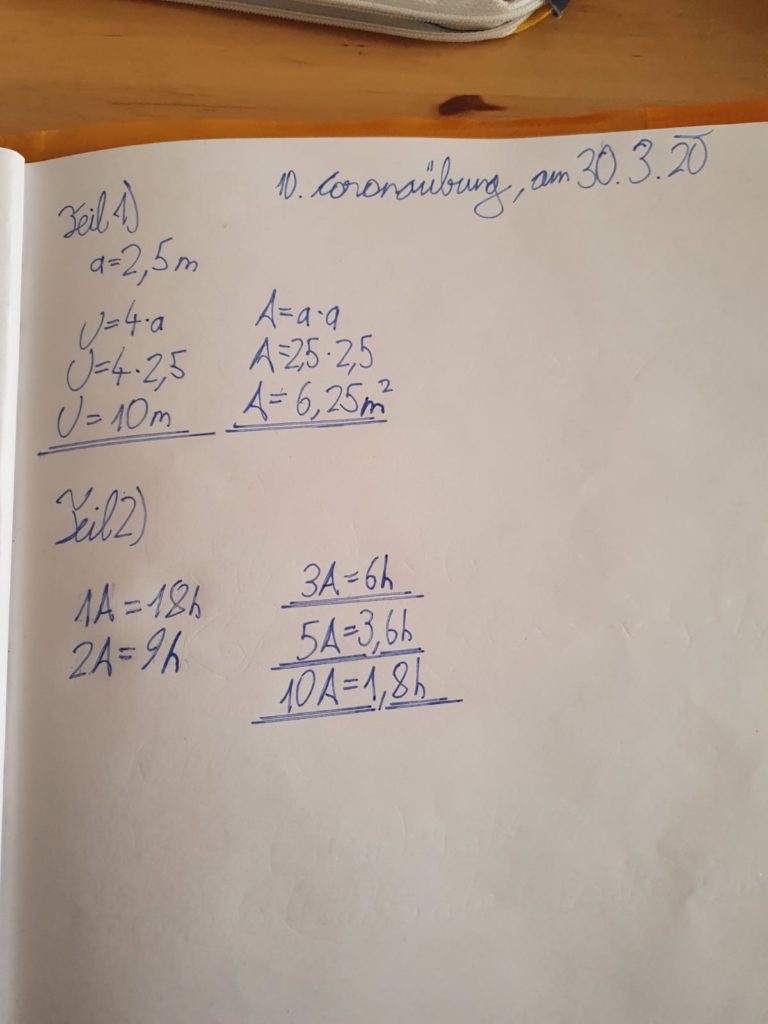 10. Coronaübung, am 30.3.20
Teil 1)
a=2,5m
U=4·a
U=4·2,5
U=10m
A=a·a
A=2,5·2,5
A=6,25m²
Teil 2)
1A=18h
2A=9h
3A=6h
5A=3,6h
10A=1,8h